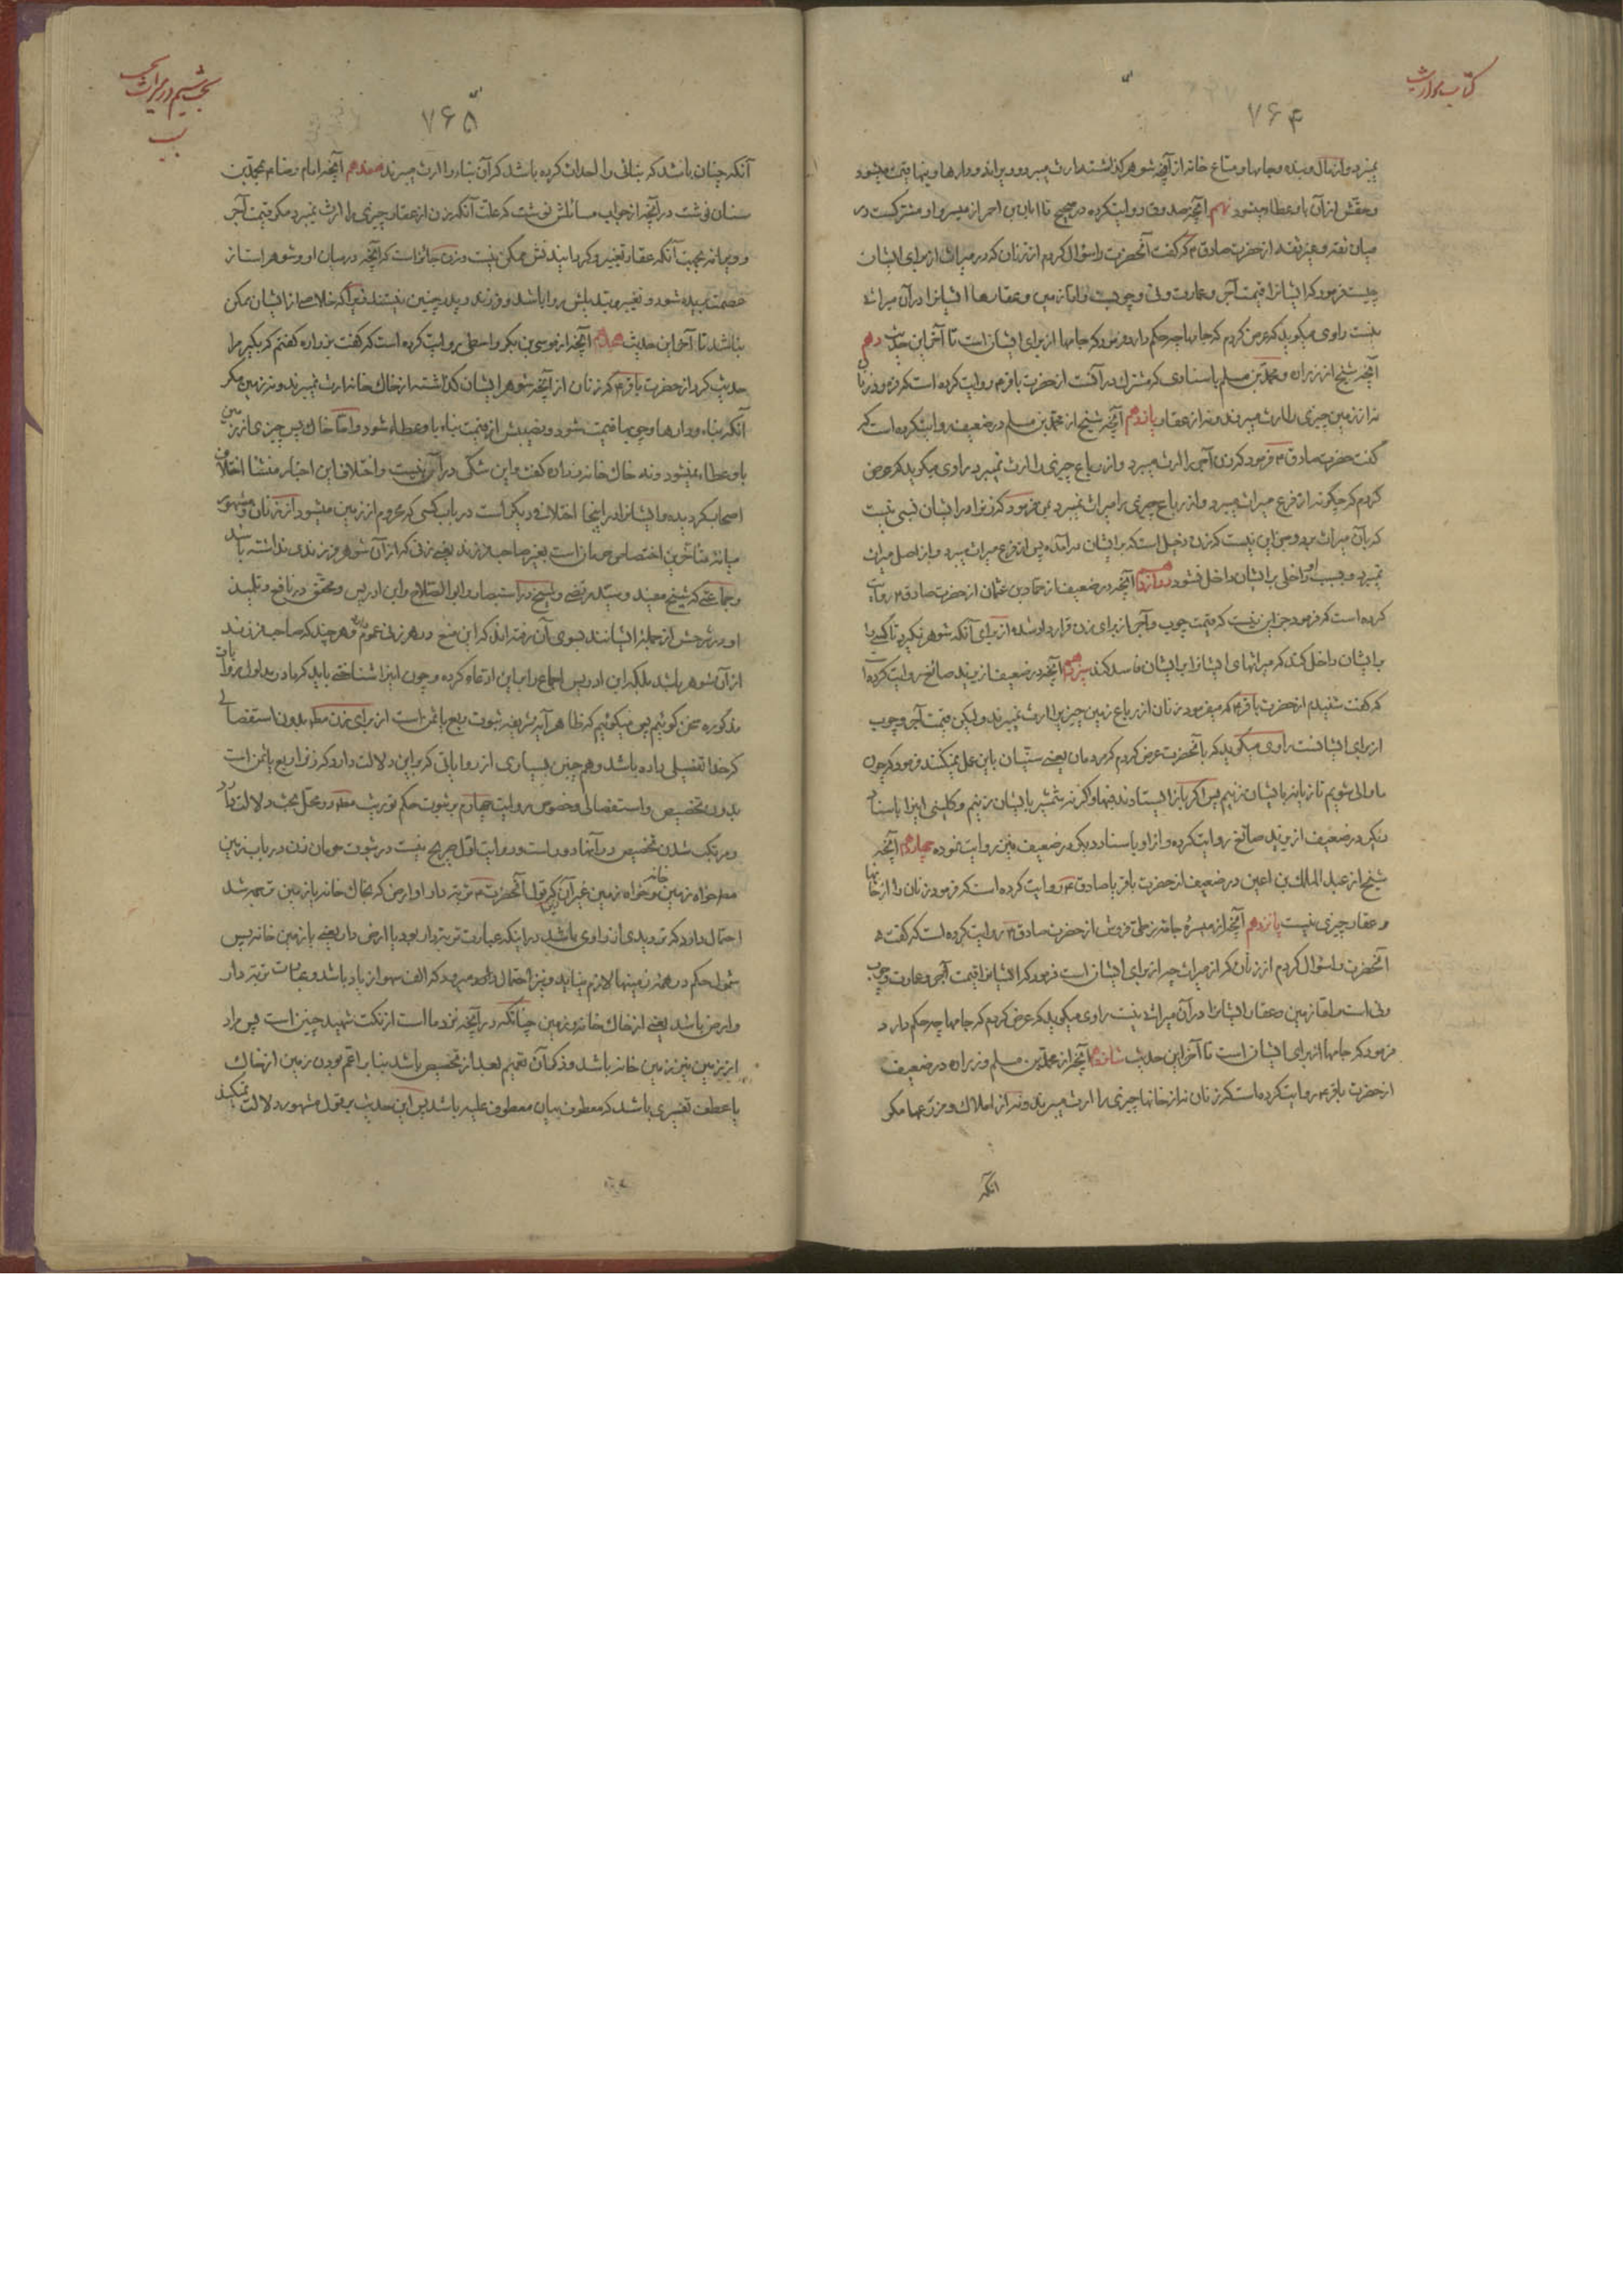 کتاب مواریث
۷۶۴
نمیبرد و از مال و بنده و جامها و متاع خانه از آنچه شوهر گذاشته ارث میبرد و ویرانه و دارها و بنها قیمت میشود
و حقش از آن باو عطاء میشود نهم آنچه صدوق روایت کرده در صحیح تا ابان بن احمر از میسر و او مشترکست در
میان ثقه و غیر ثقه از حضرت صادق ۴ که گفت آنحضرت را سؤال کردم از زنان که در میراث از برای ایشان
چیست فرمود که ایشانرا قیمت آجر و عمارت و نی و چوبست و اما زمین و عقارها ایشانرا در آن میراث
نیست راوی میگوید که عرض کردم که جامها چه حکم دارد فرمود که جامها از برای ایشان است تا آخر این حدیث دهم
آنچه شیخ از زراره و محمد بن مسلم باسنادی که مشترک در آنست از حضرت باقر ۴ روایت کرده است که فرمود زنان
نه از زمین چیزی را ارث میبرند و نه از عقار یازدهم آنچه شیخ از محمد بن مسلم در ضعیف روایت کرده است که
گفت حضرت صادق ۴ فرمود که زن آجر را ارث میبرد و از رباع چیزی را ارث نمیبرد راوی میگوید که عرض
کردم که چگونه از فرع میراث میبرد و از رباع چیزی را میراث نمیبرد پس فرمود که زنرا در ایشان نسبی نیست
که بآن میراث برد و جز این نیست که زن دخیل است که بر ایشان در آمده پس از فرع میراث میبرد و از اصل میراث
نمیبرد و بسبب او داخلی بر ایشان داخل نشود دوازدهم آنچه در ضعیف از حماد بن عثمان از حضرت صادق ۴ روایت
کرده است که فرمود جز این نیست که قیمت چوب و آجر از برای زن قرار داده شده از برای آنکه شوهر نگیرد تا کسی را
بر ایشان داخل کند که میراثهای ایشانرا بر ایشان فاسد کند سیزدهم آنچه در ضعیف از یزید صائغ روایت کرده است
که گفت شنیدم از حضرت باقر ۴ که میفرمود زنان از رباع زمین چیزیرا ارث نمیبرند و لیکن قیمت آجر و چوب
از برای ایشانست راوی میگوید که بآنحضرت عرض کردم که مردمان یعنی سنّیان باین عمل نمیکنند فرمود که چون
ما والی شویم تازیانه بایشان زنیم پس اگر باز ایستادند فبها و اگر نه شمشیر بایشان زنیم و کلینی اینرا باسناد
دیگر در ضعیف از یزید صائغ روایت کرده و از او باسناد دیگر در ضعیف نیز روایت نموده چهاردهم آنچه
شیخ از عبد الملک بن اعین در ضعیف از حضرت باقر یا صادق ۴ روایت کرده است که فرمود زنان را از خانها
و عقار چیزی نیست پانزدهم آنچه از میسره جامه زطی فروش از حضرت صادق ۴ روایت کرده است که گفت
آنحضرت را سؤال کردم از زنان که از میراث چه از برای ایشان است فرمود که ایشانرا قیمت آجر و عمارت و چوب
و نی است و امّا زمین و عقار ایشانرا در آن میراث نیست راوی میگوید که عرض کردم که جامها چه حکم دارد
فرمود که جامها از برای ایشان است تا آخر این حدیث شانزدهم آنچه از محمّد بن مسلم و زراره در ضعیف
از حضرت باقر ۴ روایت کرده است که زنان نه از خانها چیزی را ارث میبرند و نه از املاک و مزرعها مگر
آنکه
۷۶۵
آنکه چنان باشد که بنائی را احداث کرده باشد که آن بناء را ارث میبرند هفدهم آنچه امام رضا ۴ بمحمّد بن
سنان نوشت در آنچه از جواب مسائلش نوشت که علّت آنکه زن از عقار چیزی را ارث نمیبرد مگر قیمت آجر
و ویرانه بجهت آنکه عقار تغییر و گردانیدنش ممکن نیست و زن جائز است که آنچه در میان او و شوهر است از
عصمت بریده شود و تغییر و تبدیلش روا باشد و فرزند و پدر چنین نیستند زیرا که خلاصی از ایشان ممکن
نباشد تا آخر این حدیث هجدهم آنچه از موسی بن بکر واسطی روایت کرده است که گفت بزراره گفتم که بکیر مرا
حدیث کرد از حضرت باقر ۴ که زنان از آنچه شوهر ایشان گذاشته از خاک خانه ارث نمیبرند و نه زمین مگر
آنکه بناء و دارها و چوبها قیمت شود و نصیبش از قیمت بناء باو عطاء شود و امّا خاک پس چیزی از زمین
باو عطاء نمیشود و نه خاک خانه زراره گفت و این شکّی در آن نیست و اختلاف این اخبار منشأ اختلاف
اصحاب گردیده و ایشانرا در اینجا اختلاف دیگر است در باب کسی که محروم از زمین میشود از زنان و مشهور
میانه متأخرین اختصاص حرمان است بغیر صاحب فرزند یعنی زنی که از آن شوهر فرزندی نداشته باشد
و جماعتی که شیخ مفید و سیّد مرتضی و شیخ در استبصار و ابو الصّلاح و ابن ادریس و محقّق در نافع و تلمیذ
او در شرحش از جمله ایشانند بسوی آن رفته اند که این منع در هر زنی عموم دارد هر چند که صاحب فرزند
از آن شوهر باشد بلکه ابن ادریس اجماع را بر این ادّعاء کرده و چون اینرا شناختی باید که ما در مدلول روایات
مذکوره سخن گوئیم پس میگوئیم که ظاهر آیه شریفه ثبوت ربع یا ثمن است از برای زن مطلقا بدون استفصالی
که خدا تفصیلی داده باشد و همچنین بسیاری از روایاتی که بر این دلالت دارد که زنرا ربع یا ثمن است
بدون تخصیص و استفصالی و خصوص روایت چهارم بر ثبوت حکم توریث مطلقا در محل بحث دلالت دارد
و مرتکب شدن تخصیص در آنها دور است و روایت اوّل صریح نیست در ثبوت حرمان زن در باب زمین
مطلقا خواه زمین خانه و خواه زمین غیر آن که قول آنحضرت ۴ تربة دار او ارض که بخاک خانه یا زمین ترجمه شد
احتمال دارد که تردیدی از راوی باشد در اینکه عبارت تربة دار بود یا ارض دار یعنی یا زمین خانه پس
شمول حکم در همه زمینها لازم نیاید و نیز احتمال دارد میرود که الف سهو از یاد باشد و عبارت تربة دار
و ارض باشد یعنی از خاک خانه و زمین چنانکه در آنچه نزد ما است از نکت شهید چنین است پس مراد
از زمین نیز زمین خانه باشد و ذکر آن تعمیم بعد از تخصیص باشد بنا بر اعم بودن زمین از خاک
یا عطف تفسیری باشد که معطوف بیان معطوف علیه باشد پس این حدیث بر قول مشهور دلالت نمیکند